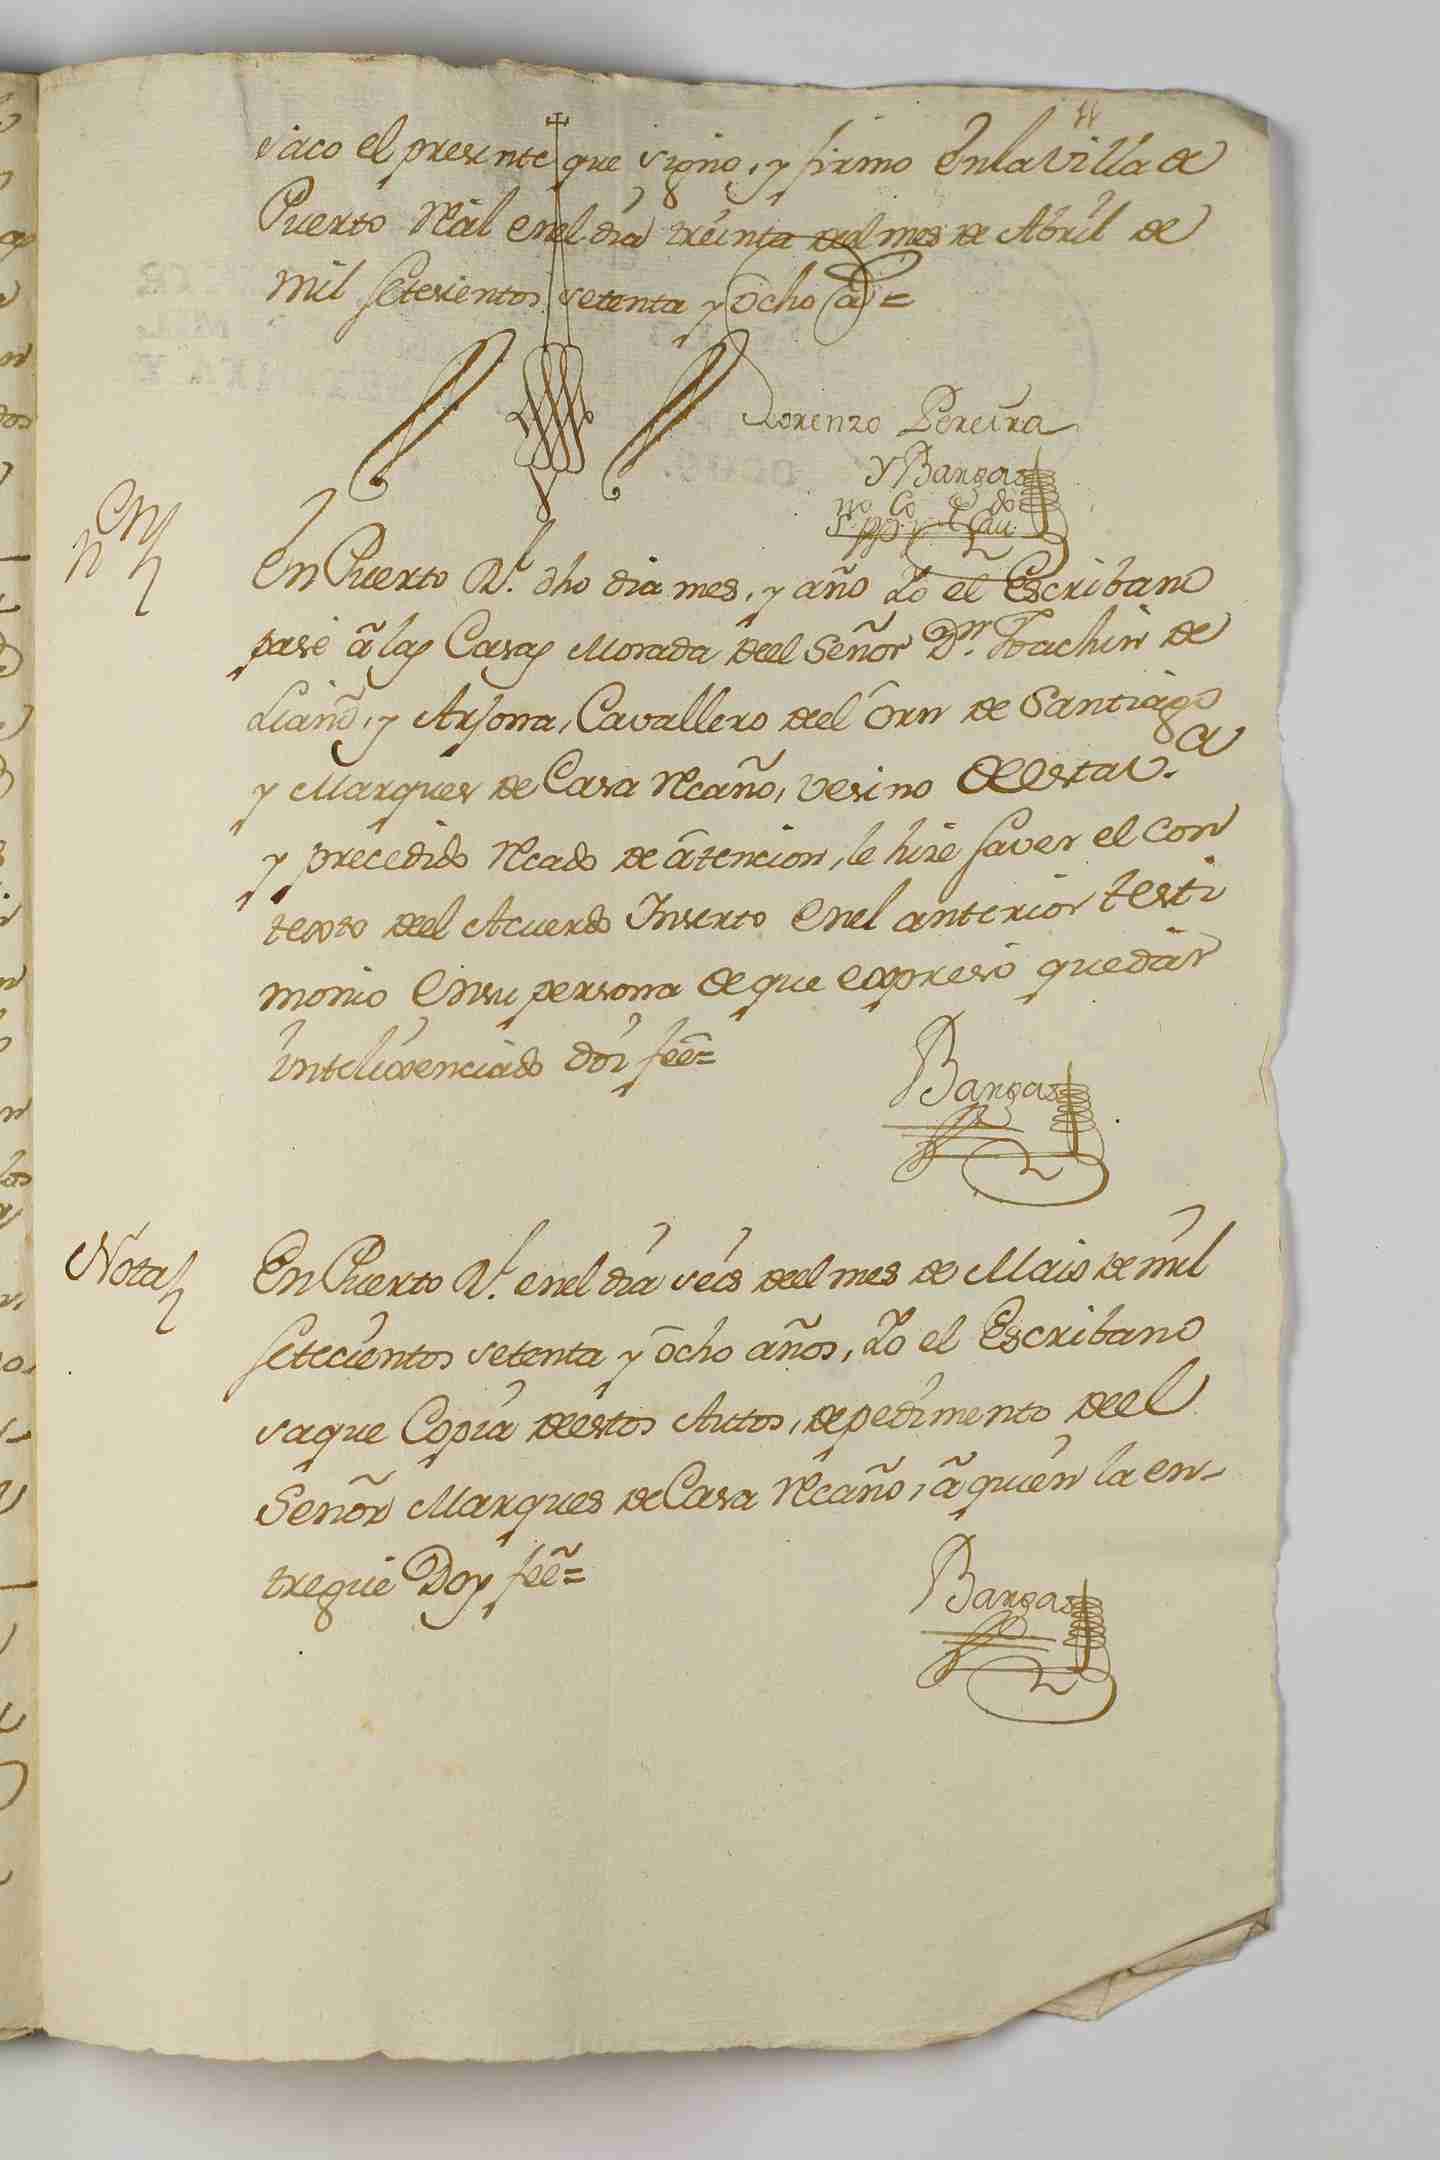 saco el presente que signo, y firmo en la Villa de
Puerto Real en el dia treinta del mes de Abril de
mil setesientos setenta y ocho a =
Lorenzo Pereira
y Bargas
no Co do
En Puerto Rl. dho dia mes, y año Yo el Escribano
pasé â las Casas Morada deel Señor Dn. Joachin de
Liaño, y Arsona, Cavallero del Orn de Santiago
y Marques de Casa Recaño, vesino de esta V.a
y precedido recado de âtencion, le hise saver el con
texto deel Acuerdo Inserto en el anterior testi
monio en su persona de que expresó quedar
inteligenciado doi feê=
Bargas
Nota
En Puerto Rl. en el dia seis deel mes de Maio de mil
setecientos setenta y ôcho años, Yo el Escribano
saque Copia de estos Autos, de pedimento deel
Señor Marques de Casa Recaño, â quien la en-
tregué Doy feê=
Bargas